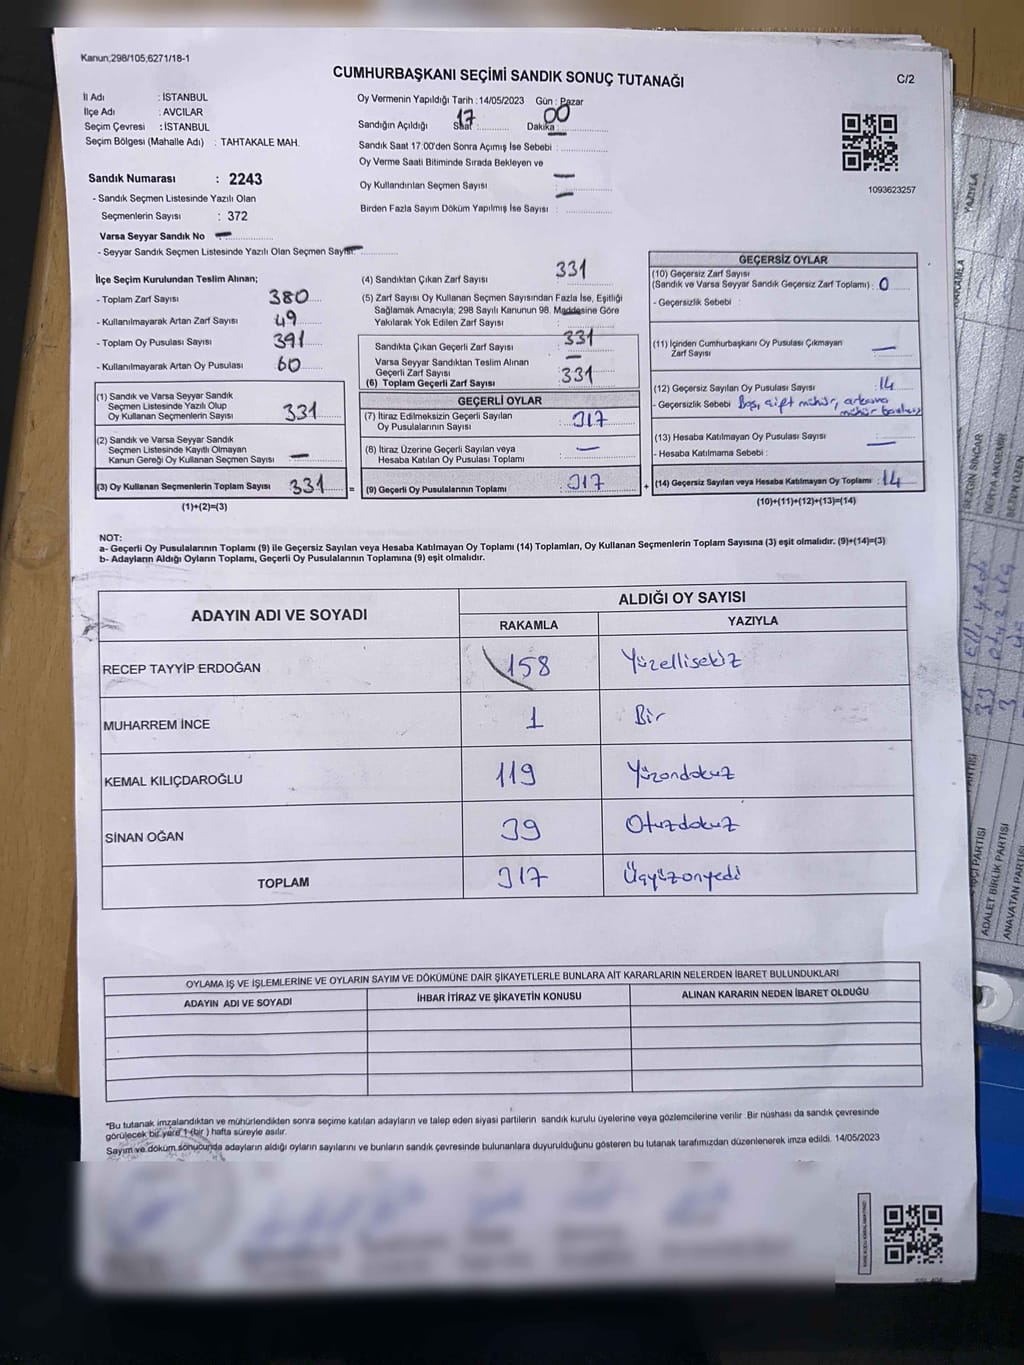 Kanun;298/105,6271/18-1
CUMHURBAŞKANI SEÇİMİ SANDIK SONUÇ TUTANAĞI
C/2
İl Adı : İSTANBUL
İlçe Adı : AVCILAR
Seçim Çevresi : İSTANBUL
Seçim Bölgesi (Mahalle Adı) : TAHTAKALE MAH.
Sandık Numarası : 2243
- Sandık Seçmen Listesinde Yazılı Olan
Seçmenlerin Sayısı : 372
Varsa Seyyar Sandık No –
- Seyyar Sandık Seçmen Listesinde Yazılı Olan Seçmen Sayısı –
Oy Vermenin Yapıldığı Tarih : 14/05/2023 Gün : Pazar
Sandığın Açıldığı Saat : 17 Dakika : 00
Sandık Saat 17:00'den Sonra Açımış İse Sebebi :
Oy Verme Saati Bitiminde Sırada Bekleyen ve
Oy Kullandırılan Seçmen Sayısı : –
Birden Fazla Sayım Döküm Yapılmış İse Sayısı : –
1093623257
İlçe Seçim Kurulundan Teslim Alınan;
- Toplam Zarf Sayısı 380
- Kullanılmayarak Artan Zarf Sayısı 49
- Toplam Oy Pusulası Sayısı 391
- Kullanılmayarak Artan Oy Pusulası 60
(1) Sandık ve Varsa Seyyar Sandık
Seçmen Listesinde Yazılı Olup
Oy Kullanan Seçmenlerin Sayısı 331
(2) Sandık ve Varsa Seyyar Sandık
Seçmen Listesinde Kayıtlı Olmayan
Kanun Gereği Oy Kullanan Seçmen Sayısı –
(3) Oy Kullanan Seçmenlerin Toplam Sayısı 331 =
(1)+(2)=(3)
(4) Sandıktan Çıkan Zarf Sayısı 331
(5) Zarf Sayısı Oy Kullanan Seçmen Sayısından Fazla İse, Eşitliği
Sağlamak Amacıyla; 298 Sayılı Kanunun 98. Maddesine Göre
Yakılarak Yok Edilen Zarf Sayısı : –
Sandıkta Çıkan Geçerli Zarf Sayısı 331
Varsa Seyyar Sandıktan Teslim Alınan
Geçerli Zarf Sayısı –
(6) Toplam Geçerli Zarf Sayısı 331
GEÇERLİ OYLAR
(7) İtiraz Edilmeksizin Geçerli Sayılan
Oy Pusulalarının Sayısı : 317
(8) İtiraz Üzerine Geçerli Sayılan veya
Hesaba Katılan Oy Pusulası Toplamı : –
(9) Geçerli Oy Pusulalarının Toplamı : 317 +
GEÇERSİZ OYLAR
(10) Geçersiz Zarf Sayısı
(Sandık ve Varsa Seyyar Sandık Geçersiz Zarf Toplamı) : 0
- Geçersizlik Sebebi :
(11) İçinden Cumhurbaşkanı Oy Pusulası Çıkmayan
Zarf Sayısı –
(12) Geçersiz Sayılan Oy Pusulası Sayısı : 14
- Geçersizlik Sebebi Boş, çift mühür, arkasına
mühür baskısı
(13) Hesaba Katılmayan Oy Pusulası Sayısı : –
- Hesaba Katılmama Sebebi :
(14) Geçersiz Sayılan veya Hesaba Katılmayan Oy Toplamı : 14
(10)+(11)+(12)+(13)=(14)
NOT:
a- Geçerli Oy Pusulalarının Toplamı (9) ile Geçersiz Sayılan veya Hesaba Katılmayan Oy Toplamı (14) Toplamları, Oy Kullanan Seçmenlerin Toplam Sayısına (3) eşit olmalıdır. (9)+(14)=(3)
b- Adayların Aldığı Oyların Toplamı, Geçerli Oy Pusulalarının Toplamına (9) eşit olmalıdır.
ADAYIN ADI VE SOYADI
ALDIĞI OY SAYISI
RAKAMLA YAZIYLA
RECEP TAYYİP ERDOĞAN 158 Yüzellisekiz
MUHARREM İNCE 1 Bir
KEMAL KILIÇDAROĞLU 119 Yüzondokuz
SİNAN OĞAN 39 Otuzdokuz
TOPLAM 317 Üçyüzonyedi
OYLAMA İŞ VE İŞLEMLERİNE VE OYLARIN SAYIM VE DÖKÜMÜNE DAİR ŞİKAYETLERLE BUNLARA AİT KARARLARIN NELERDEN İBARET BULUNDUKLARI
ADAYIN ADI VE SOYADI İHBAR İTİRAZ VE ŞİKAYETİN KONUSU ALINAN KARARIN NEDEN İBARET OLDUĞU
*Bu tutanak imzalandıktan ve mühürlendikten sonra seçime katılan adayların ve talep eden siyasi partilerin sandık kurulu üyelerine veya gözlemcilerine verilir .Bir nüshası da sandık çevresinde
görülecek bir yere 1 (bir ) hafta süreyle asılır.
Sayım ve döküm sonucunda adayların aldığı oyların sayılarını ve bunların sandık çevresinde bulunanlara duyurulduğunu gösteren bu tutanak tarafımızdan düzenlenerek imza edildi. 14/05/2023
YAZIYLA
RAKAMLA
SEZGİN SİNCAR
DERYA AKDEMİR
ADALET BİRLİK PARTİSİ
ANAVATAN PARTİSİ